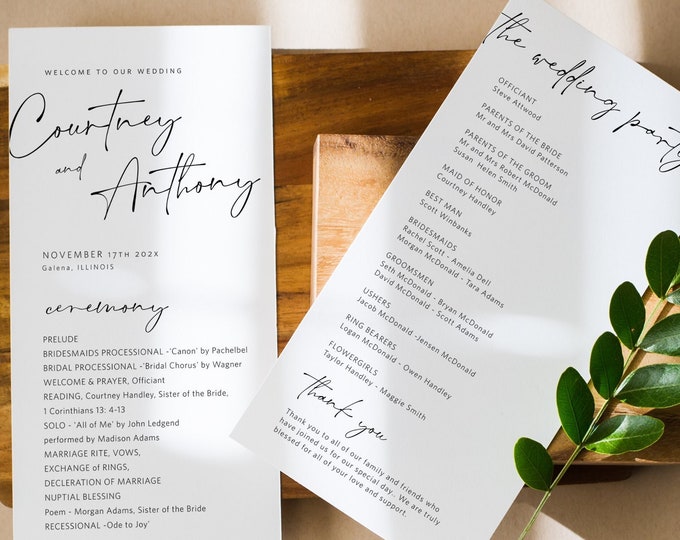 WELCOME TO OUR WEDDING
Courtney
and
Anthony
NOVEMBER 17TH 202X
Galena, ILLINOIS
ceremony
PRELUDE
BRIDESMAIDS PROCESSIONAL -'Canon' by Pachelbel
BRIDAL PROCESSIONAL -'Bridal Chorus' by Wagner
WELCOME & PRAYER, Officiant
READING, Courtney Handley, Sister of the Bride,
1 Corinthians 13: 4-13
SOLO - 'All of Me' by John Ledgend
performed by Madison Adams
MARRIAGE RITE, VOWS,
EXCHANGE of RINGS,
DECLARATION OF MARRIAGE
NUPTIAL BLESSING
Poem - Morgan Adams, Sister of the Bride
RECESSIONAL -Ode to Joy'
the wedding party
OFFICIANT
Steve Attwood
PARENTS OF THE BRIDE
Mr and Mrs David Patterson
PARENTS OF THE GROOM
Mr and Mrs Robert McDonald
Susan Helen Smith
MAID OF HONOR
Courtney Handley
BEST MAN
Scott Winbanks
BRIDESMAIDS
Rachel Scott - Amelia Dell
Morgan McDonald - Tara Adams
GROOMSMEN
Seth McDonald - Bryan McDonald
David McDonald - Scott Adams
USHERS
Jacob McDonald -Jensen McDonald
RING BEARERS
Logan McDonald - Owen Handley
FLOWERGIRLS
Taylor Handley - Maggie Smith
thank you
Thank you to all of our family and friends who
have joined us for our special day.. We are truly
blessed for all of your love and support.